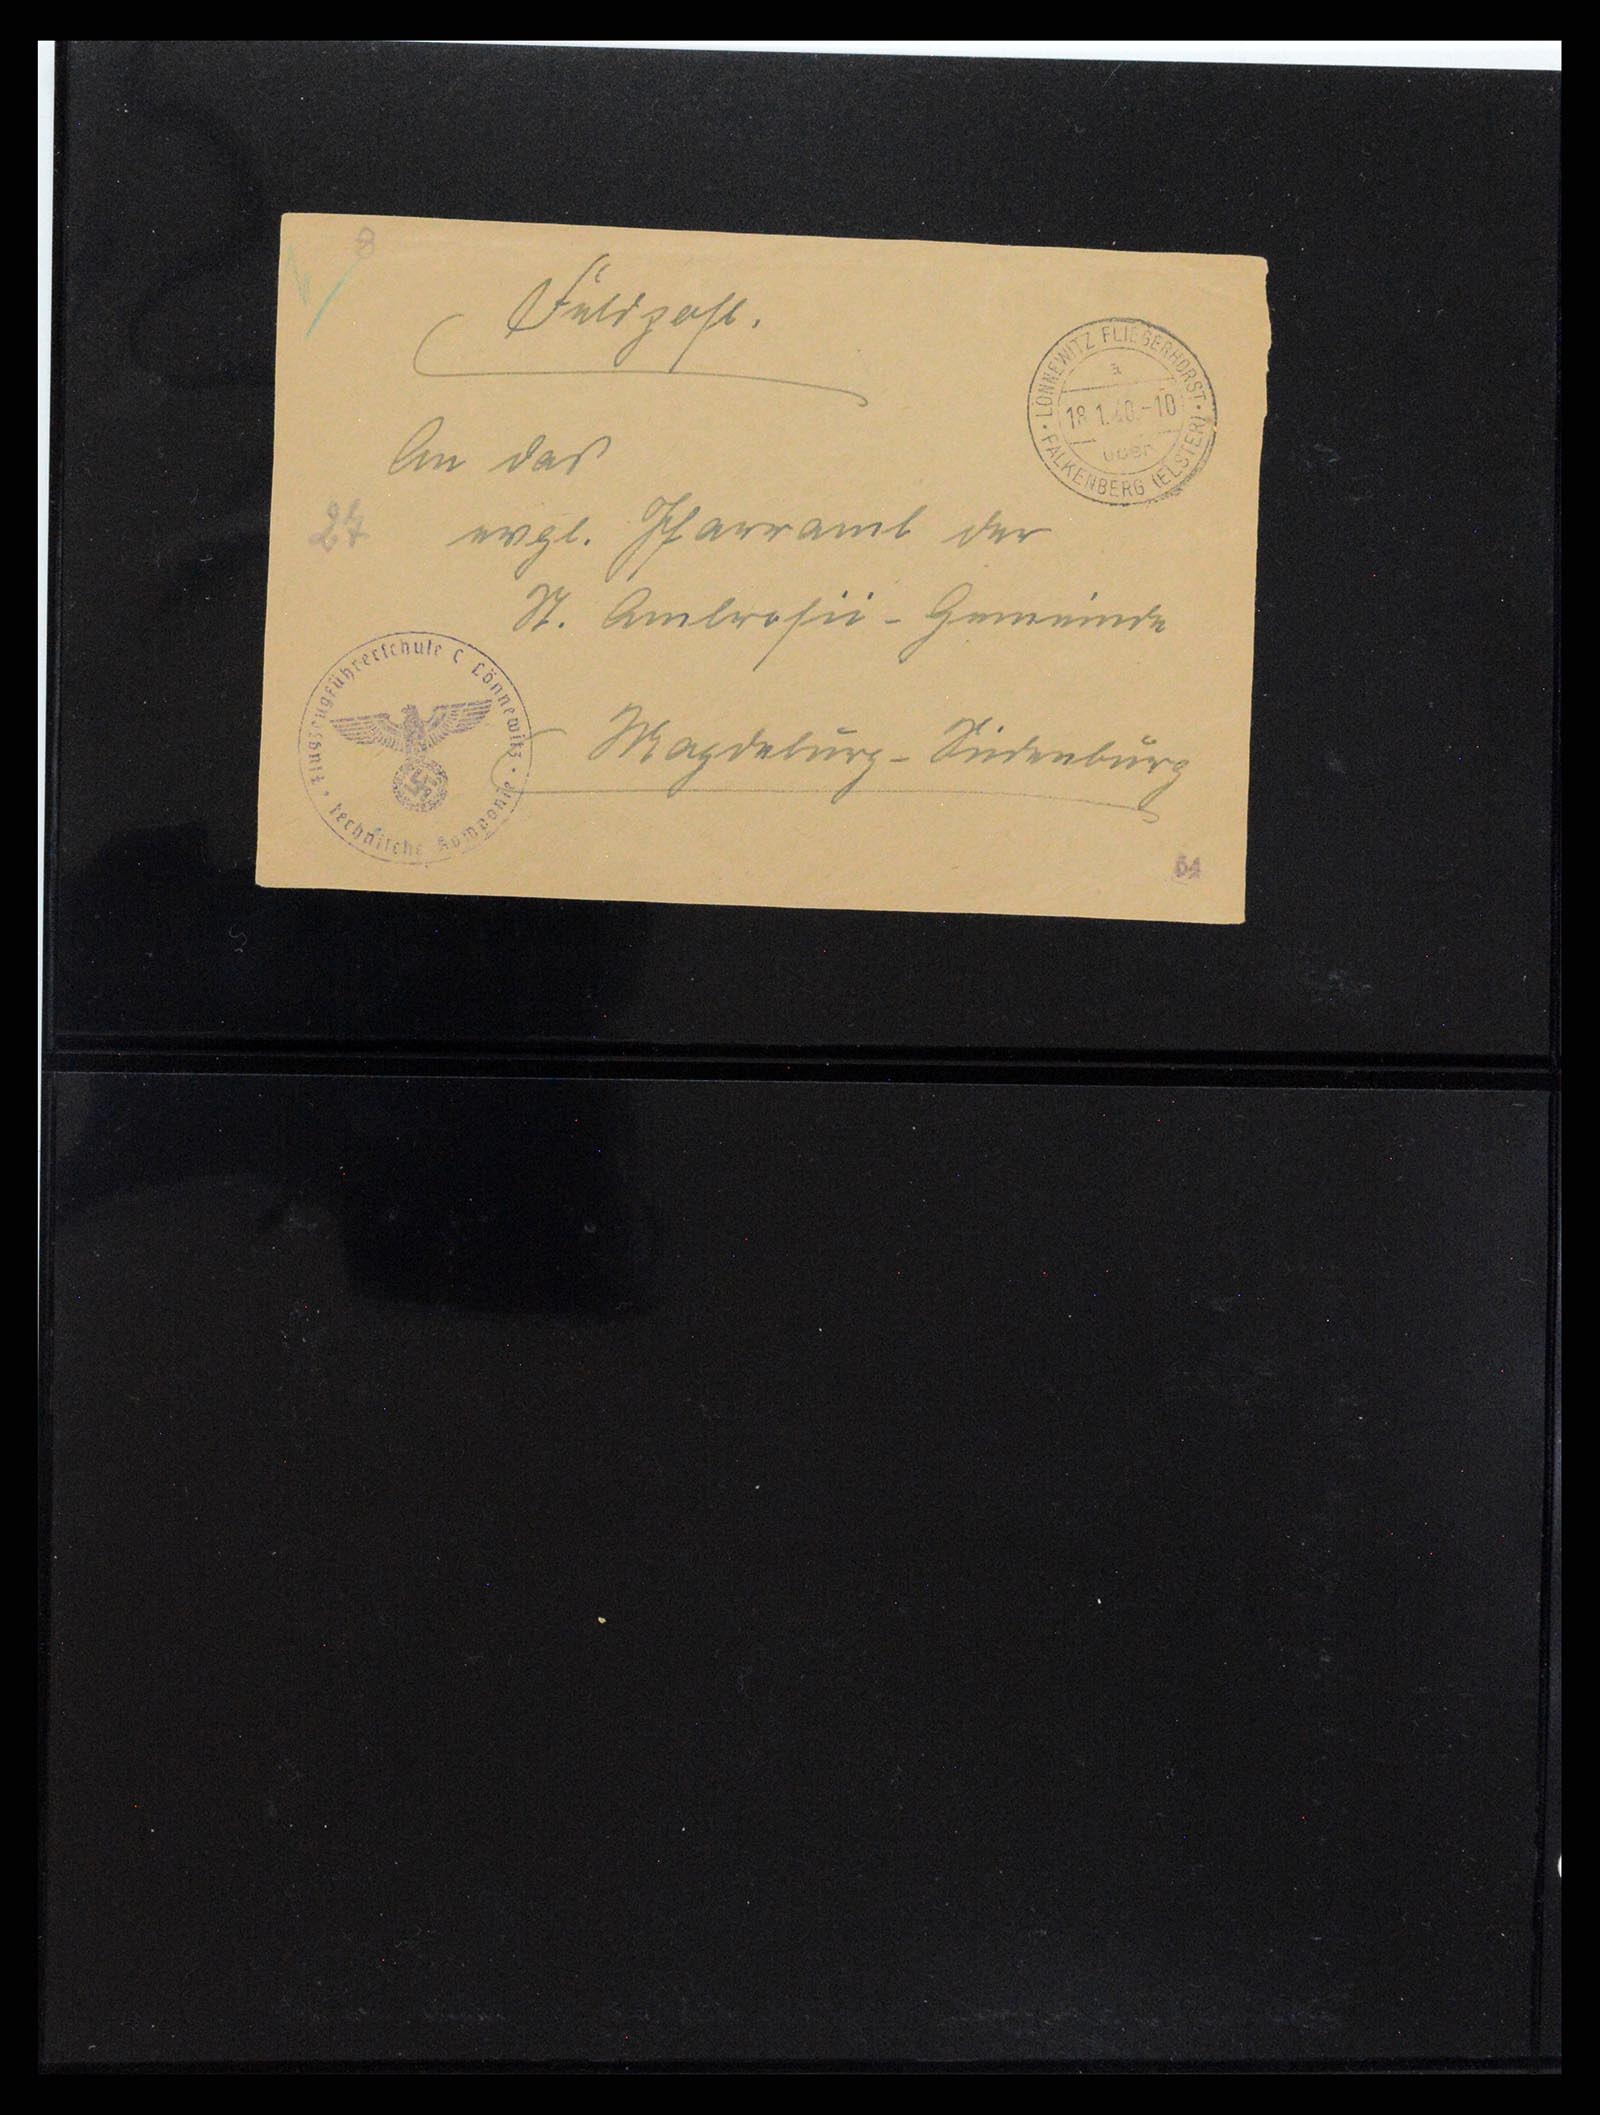 8
Feldpost.
LÖNNEWITZ FLIEGERHORST
a
18.1.40.-10
über
FALKENBERG (ELSTER)
An das
evgl. Pfarramt der
24
St. Ambrosii - Gemeinde
Magdeburg - Sudenburg
Flugzeugführerschule C Lönnewitz
Technische Kompanie
54